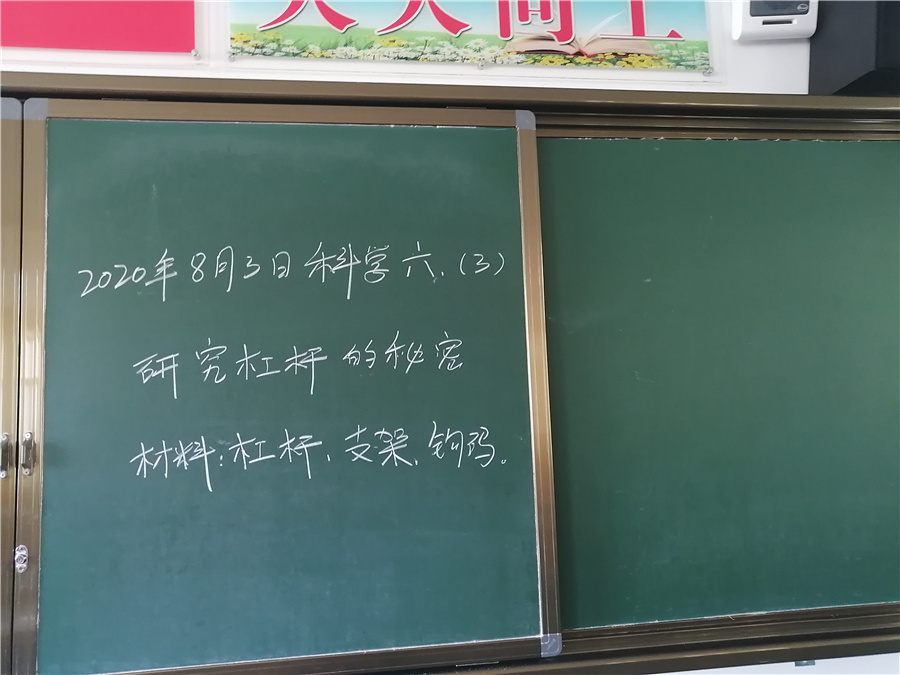 天天向上
2020年8月3日科学六.(3)
研究杠杆的秘密
材料:杠杆.支架.钩码。